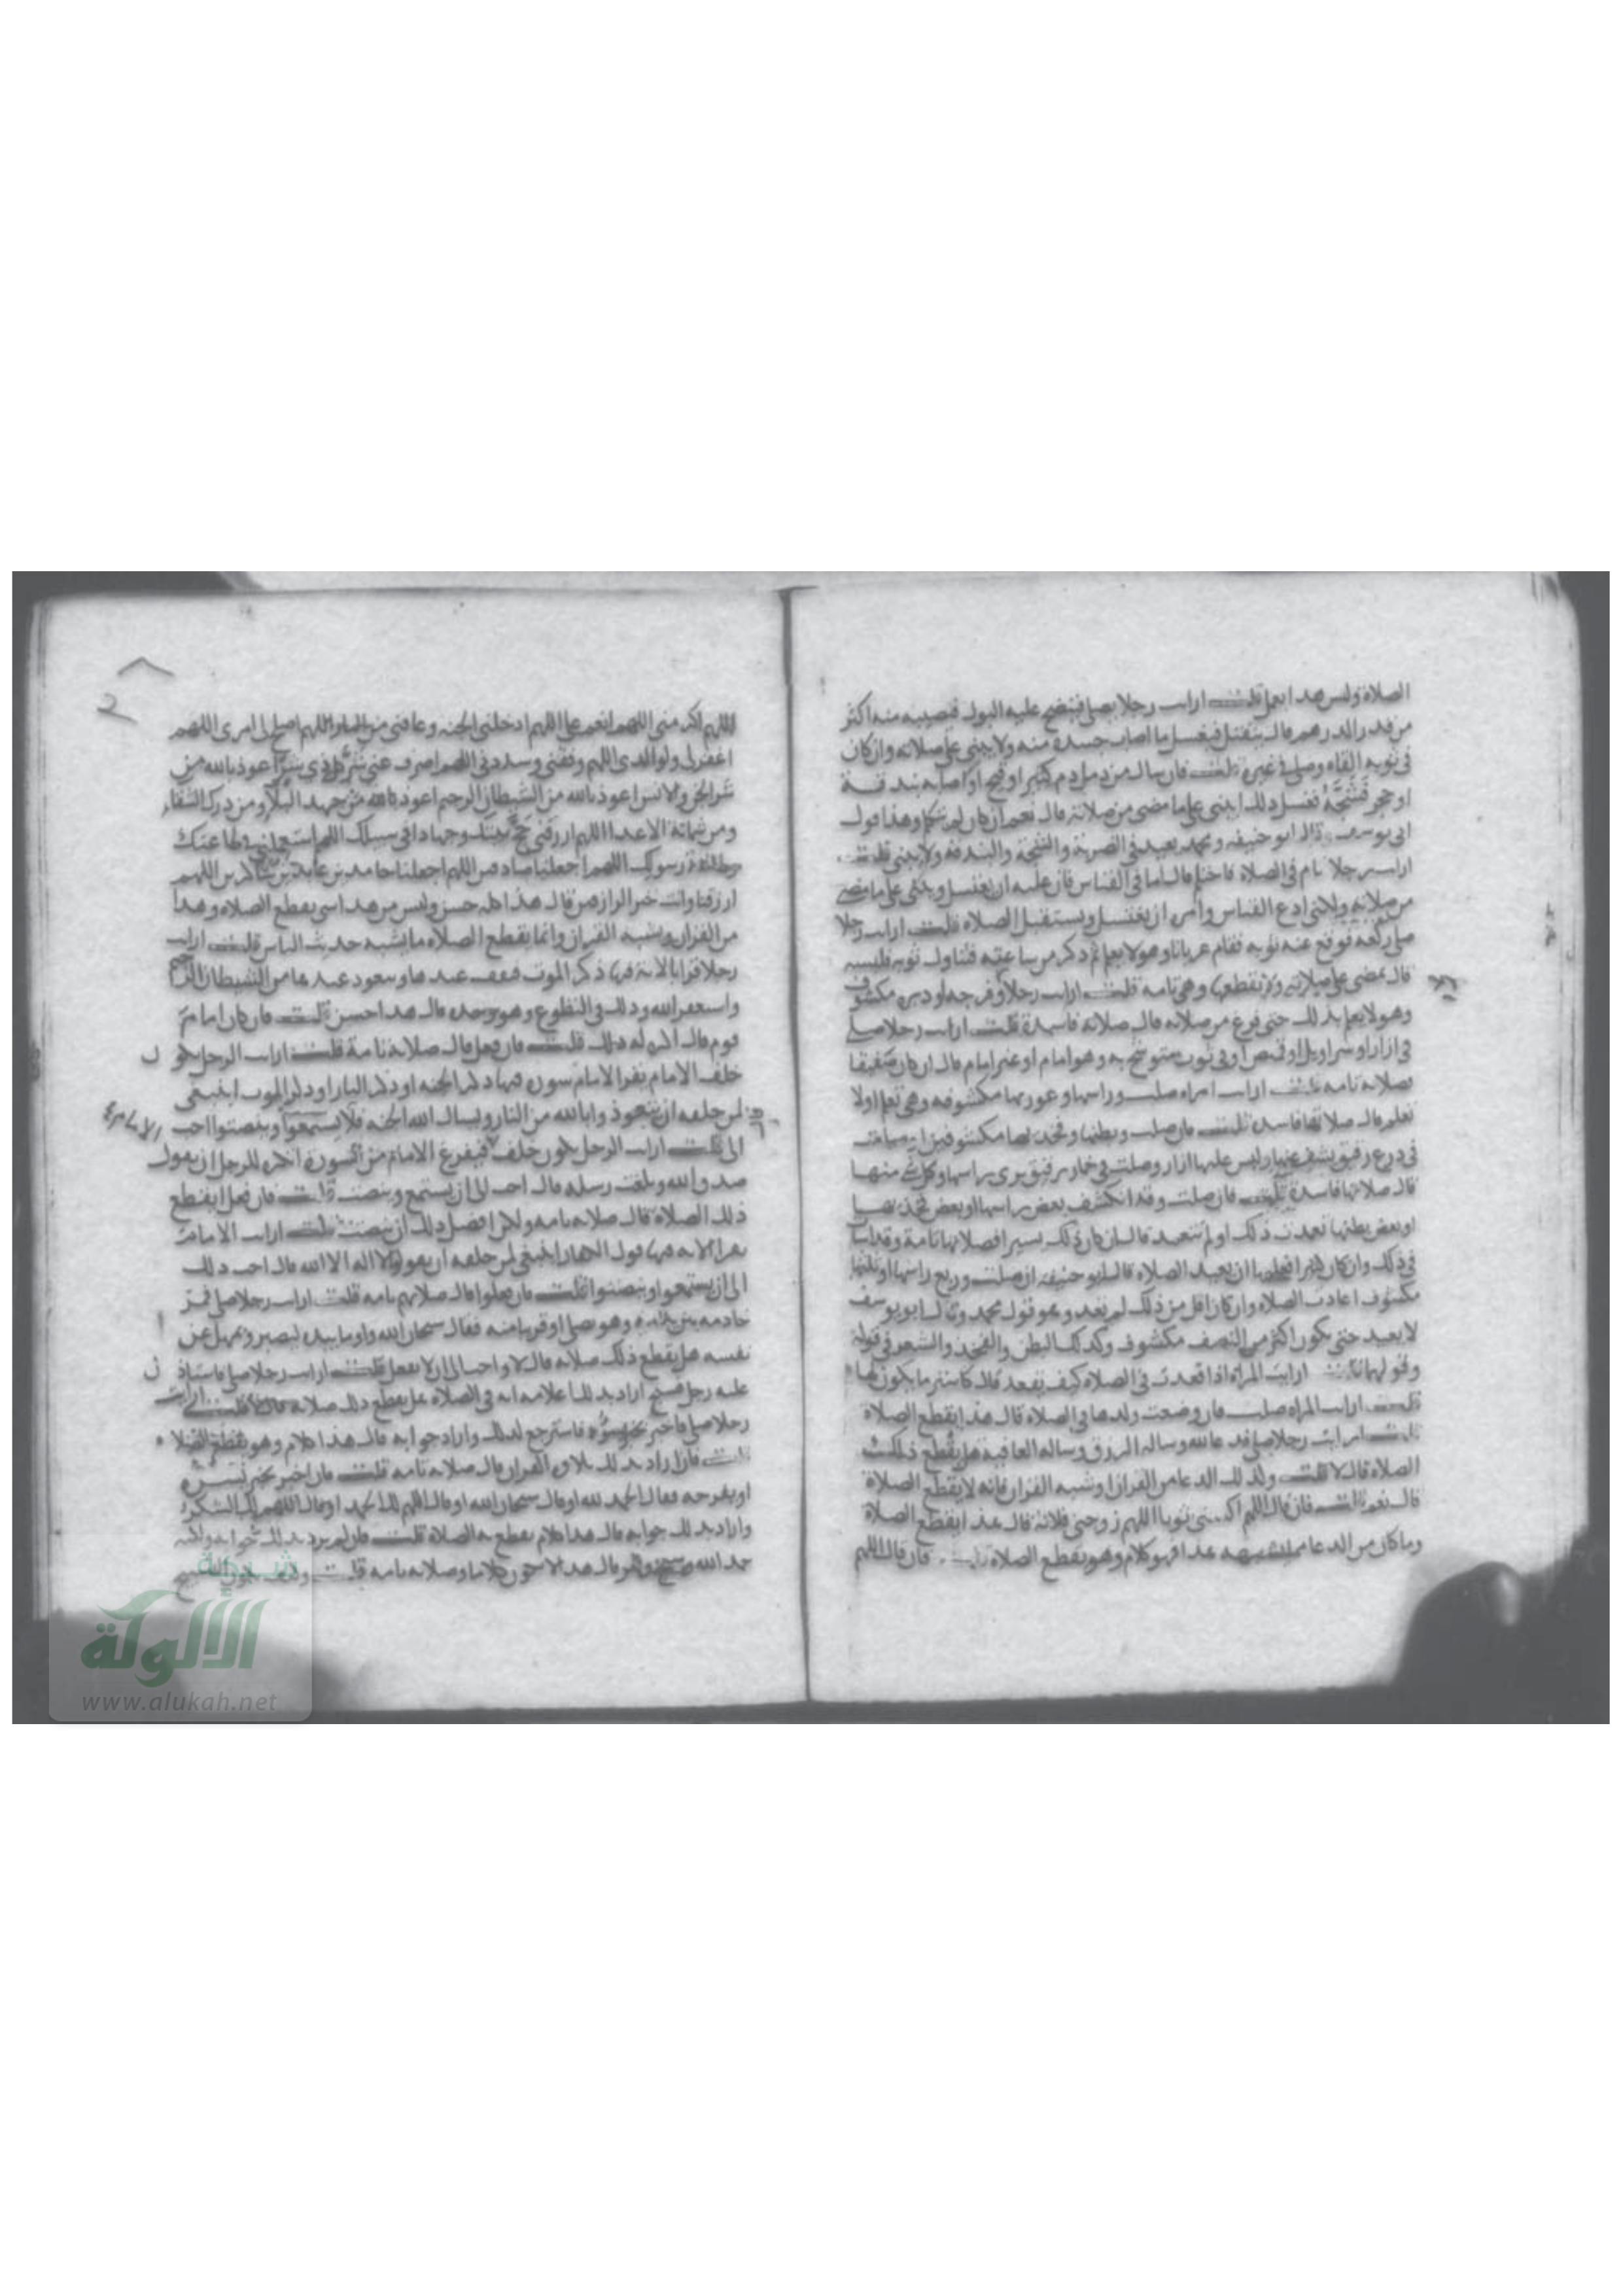 الصلاة وليس هذا بعمل قلت ارايت رجلا يصلي فينضح عليه البول فيصيبه منه اكثر
من قدر الدرهم قال ينفتل فيغسل ما اصاب جسده منه ولا يبني على صلاته وان كان
في ثوبه القاه وصلى في غيره قلت فان سال من دمل دم كثير او قيح او اصابه بندقة
او حجر فشجه فغسل ذلك ايبني على ما مضى من صلاته قال نعم ان كان لم يتكلم وهذا قول
ابي يوسف وقال ابو حنيفه ومحمد يعيد في الضربة والشجة والبندقة ولا يبني قلت
ارايت رجلا نام في الصلاة فاحتلم قال اما في القياس فان عليه ان يغتسل ويبني على ما مضى
من صلاته ولكني ادع القياس وآمره ان يغتسل ويستقبل الصلاه قلت ارايت رجلا
صلى ركعه فوقع عنه ثوبه فقام عريانا وهو لا يعلم ثم ذكر من ساعته فتناول ثوبه فلبسه
قال يمضي على صلاته ولا يقطعها وهي تامه قلت ارايت رجلا وفرجه او دبره مكشوف
وهو لا يعلم بذلك حتى فرغ من صلاته قال صلاته فاسدة قلت ارايت رجلا صلى
في ازار او سراويل او قميص او في ثوب متوشح به وهو امام او غير امام قال ان كان صفيقا
فصلاته تامه قلت ارايت امراه صلت وراسها وعورتها مكشوفه وهي تعلم او لا
تعلم قال صلاتها فاسده قلت فان صلت وبطنها وفخذيها مكشوفين
في درع رقيق يشف عنها وليس عليها ازار وصلت في خمار رقيق يرى راسها وكل شي منها
قال صلاتها فاسدة قلت فان صلت وقد انكشف بعض راسها او بعض فخذيها
او بعض بطنها تعمدت ذلك او لم تتعمد قال ان كان ذلك يسيرا فصلاتها تامة وقد اسات
في ذلك وان كان كثيرا فعليها ان تعيد الصلاه قال ابو حنيفه ان صلت وربع راسها او ثلثها
مكشوف اعادت الصلاه وان كان اقل من ذلك لم تعد وهو قول محمد وقال ابو يوسف
لا يعيد حتى يكون اكثر من النصف مكشوف وكذلك البطن والفخذ والشعر في قوله
وقولهما قلت ارايت المراة اذا قعدت في الصلاه كيف تقعد قال كاستر ما يكون لها
قلت ارايت المراه صلت فارضعت ولدها في الصلاه قال هذا يقطع الصلاة
قلت ارايت رجلا صلى فدعا الله وساله الرزق وساله العافية هل يقطع ذلك
الصلاه قال لا قلت وكذلك الدعا من القران وشبه القران فانه لا يقطع الصلاة
قال نعم قلت فان قال اللهم اكسني ثوبا اللهم زوجني فلانة قال هذا يقطع الصلاة
وما كان من الدعا مما يشبه هذا فهو كلام وهو يقطع الصلاه قلت فان قال اللهم
اللهم اكرمني اللهم انعم علي اللهم ادخلني الجنه وعافني من النار اللهم اصلح لي امري اللهم
اغفر لي ولوالدي اللهم وفقني وسددني اللهم اصرف عني شر كل ذي شر اعوذ بالله من
شر الجن والانس اعوذ بالله من الشيطان الرجيم اعوذ بالله من جهد البلاء ومن درك الشقاء
ومن شماتة الاعدا اللهم ارزقني حج بيتك وجهادا في سبيلك اللهم استعملني في طاعتك
وطاعة رسولك اللهم اجعلنا صادقين اللهم اجعلنا حامدين عابدين شاكرين اللهم
ارزقنا وانت خير الرازقين قال هذا كله حسن وليس من هذا شي يقطع الصلاه وهذا
من القران ويشبه القران وانما يقطع الصلاه ما يشبه حديث الناس قلت ارايت
رجلا قرا بالاية فيها ذكر الموت فوقف عندها وتعوذ عندها من الشيطان الرجيم
واستغفر الله وذلك في التطوع وهو وحده قال هذا حسن قلت فان كان امام
قوم قال اكره له ذلك قلت فان فعل قال صلاته تامة قلت ارايت الرجل يكون
خلف الامام يقرا الامام سورة فيها ذكر الجنه او ذكر النار او ذكر الموت اينبغي
لمن خلفه ان يتعوذ بالله من النار ويسال الله الجنه قال يستمعوا وينصتوا احب
الي قلت ارايت الرجل يكون خلف الامام فيفرغ الامام من السورة اتكره للرجل ان يقول
صدق الله وبلغت رسله قال احب الي ان يستمع وينصت قلت فان فعل ايقطع
ذلك الصلاة قال صلاته تامه ولكن افضل ذلك ان ينصت قلت ارايت الامام
يقرا الايه فيها قول الكفار اينبغي لمن خلفه ان يقولوا لا اله الا الله قال احب ذلك
الي ان يستمعوا وينصتوا قلت فان فعلوا قال صلاتهم تامه قلت ارايت رجلا صلى فمر
خادمه بين يديه وهو يصلي او قريبا منه فقال سبحان الله واوما بيده ليصرفه عن
نفسه هل يقطع ذلك صلاته قال لا واحب الي ان لا يفعل قلت ارايت رجلا صلى فاستاذن
عليه رجل فسبح اراد بذلك اعلامه انه في الصلاه هل يقطع ذلك صلاته قال لا قلت ارايت
رجلا صلى فاخبر بخبر يسوءه فاسترجع لذلك واراد جوابه قال هذا كلام وهو يقطع الصلاة
قلت فان اراد بذلك تلاوة القران قال صلاته تامه قلت فان اخبر بخبر يسره
او يفرحه فقال الحمد لله او قال سبحان الله او قال اللهم لك الحمد او قال اللهم لك الشكر
واراد بذلك جوابه قال هذا كلام يقطع الصلاة قلت فان لم يرد بذلك جوابه ولكنه
حمد الله وسبح وكبر قال هذا لا يكون كلاما وصلاته تامه قلت
الامام
شبكة
الألوكة
www.alukah.net